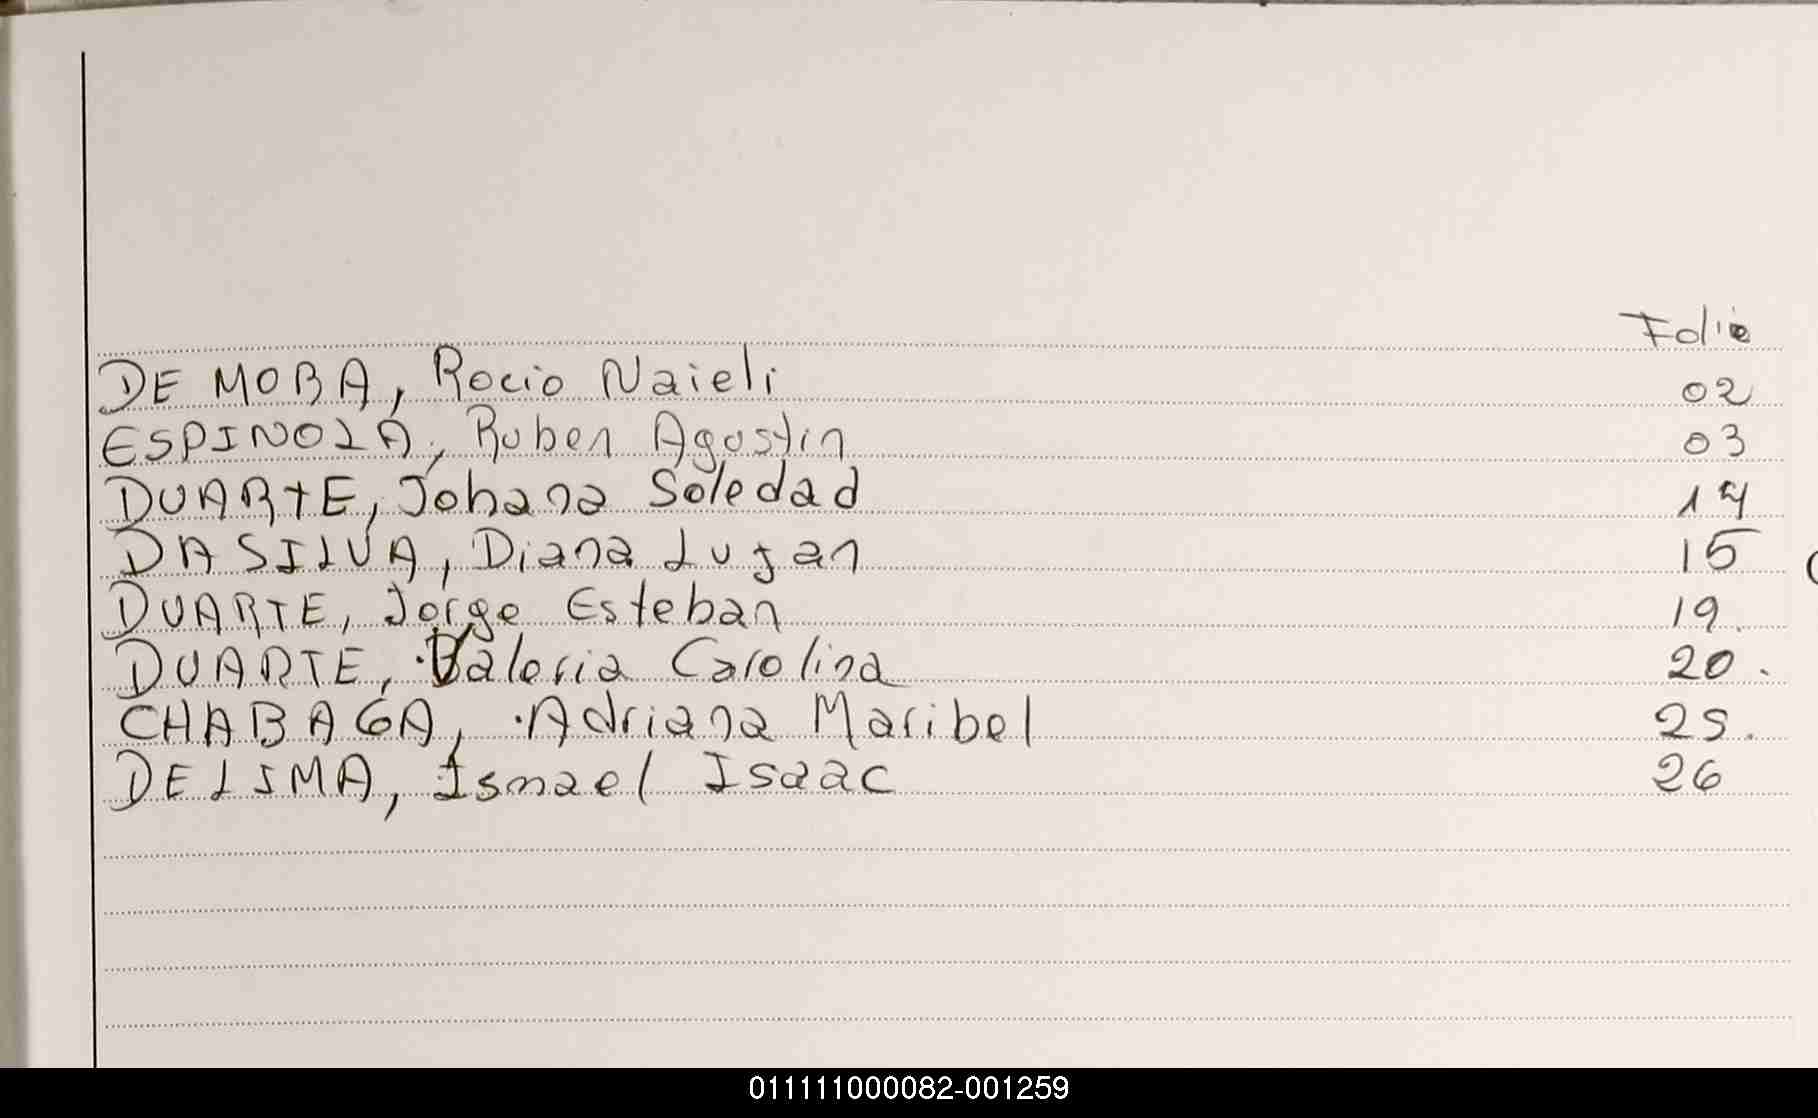 Folio
DE MORA, Rocio Naieli 02
ESPINOZA, Ruben Agostin 03
DUARTE, Johana Soledad 14
DA SILVA, Diana Lujan 15
DUARTE, Jorge Esteban 19.
DUARTE, Valeria Carolina 20.
CHABAGA, Adriana Maribel 25.
DE LIMA, Ismael Isaac 26
011111000082-001259